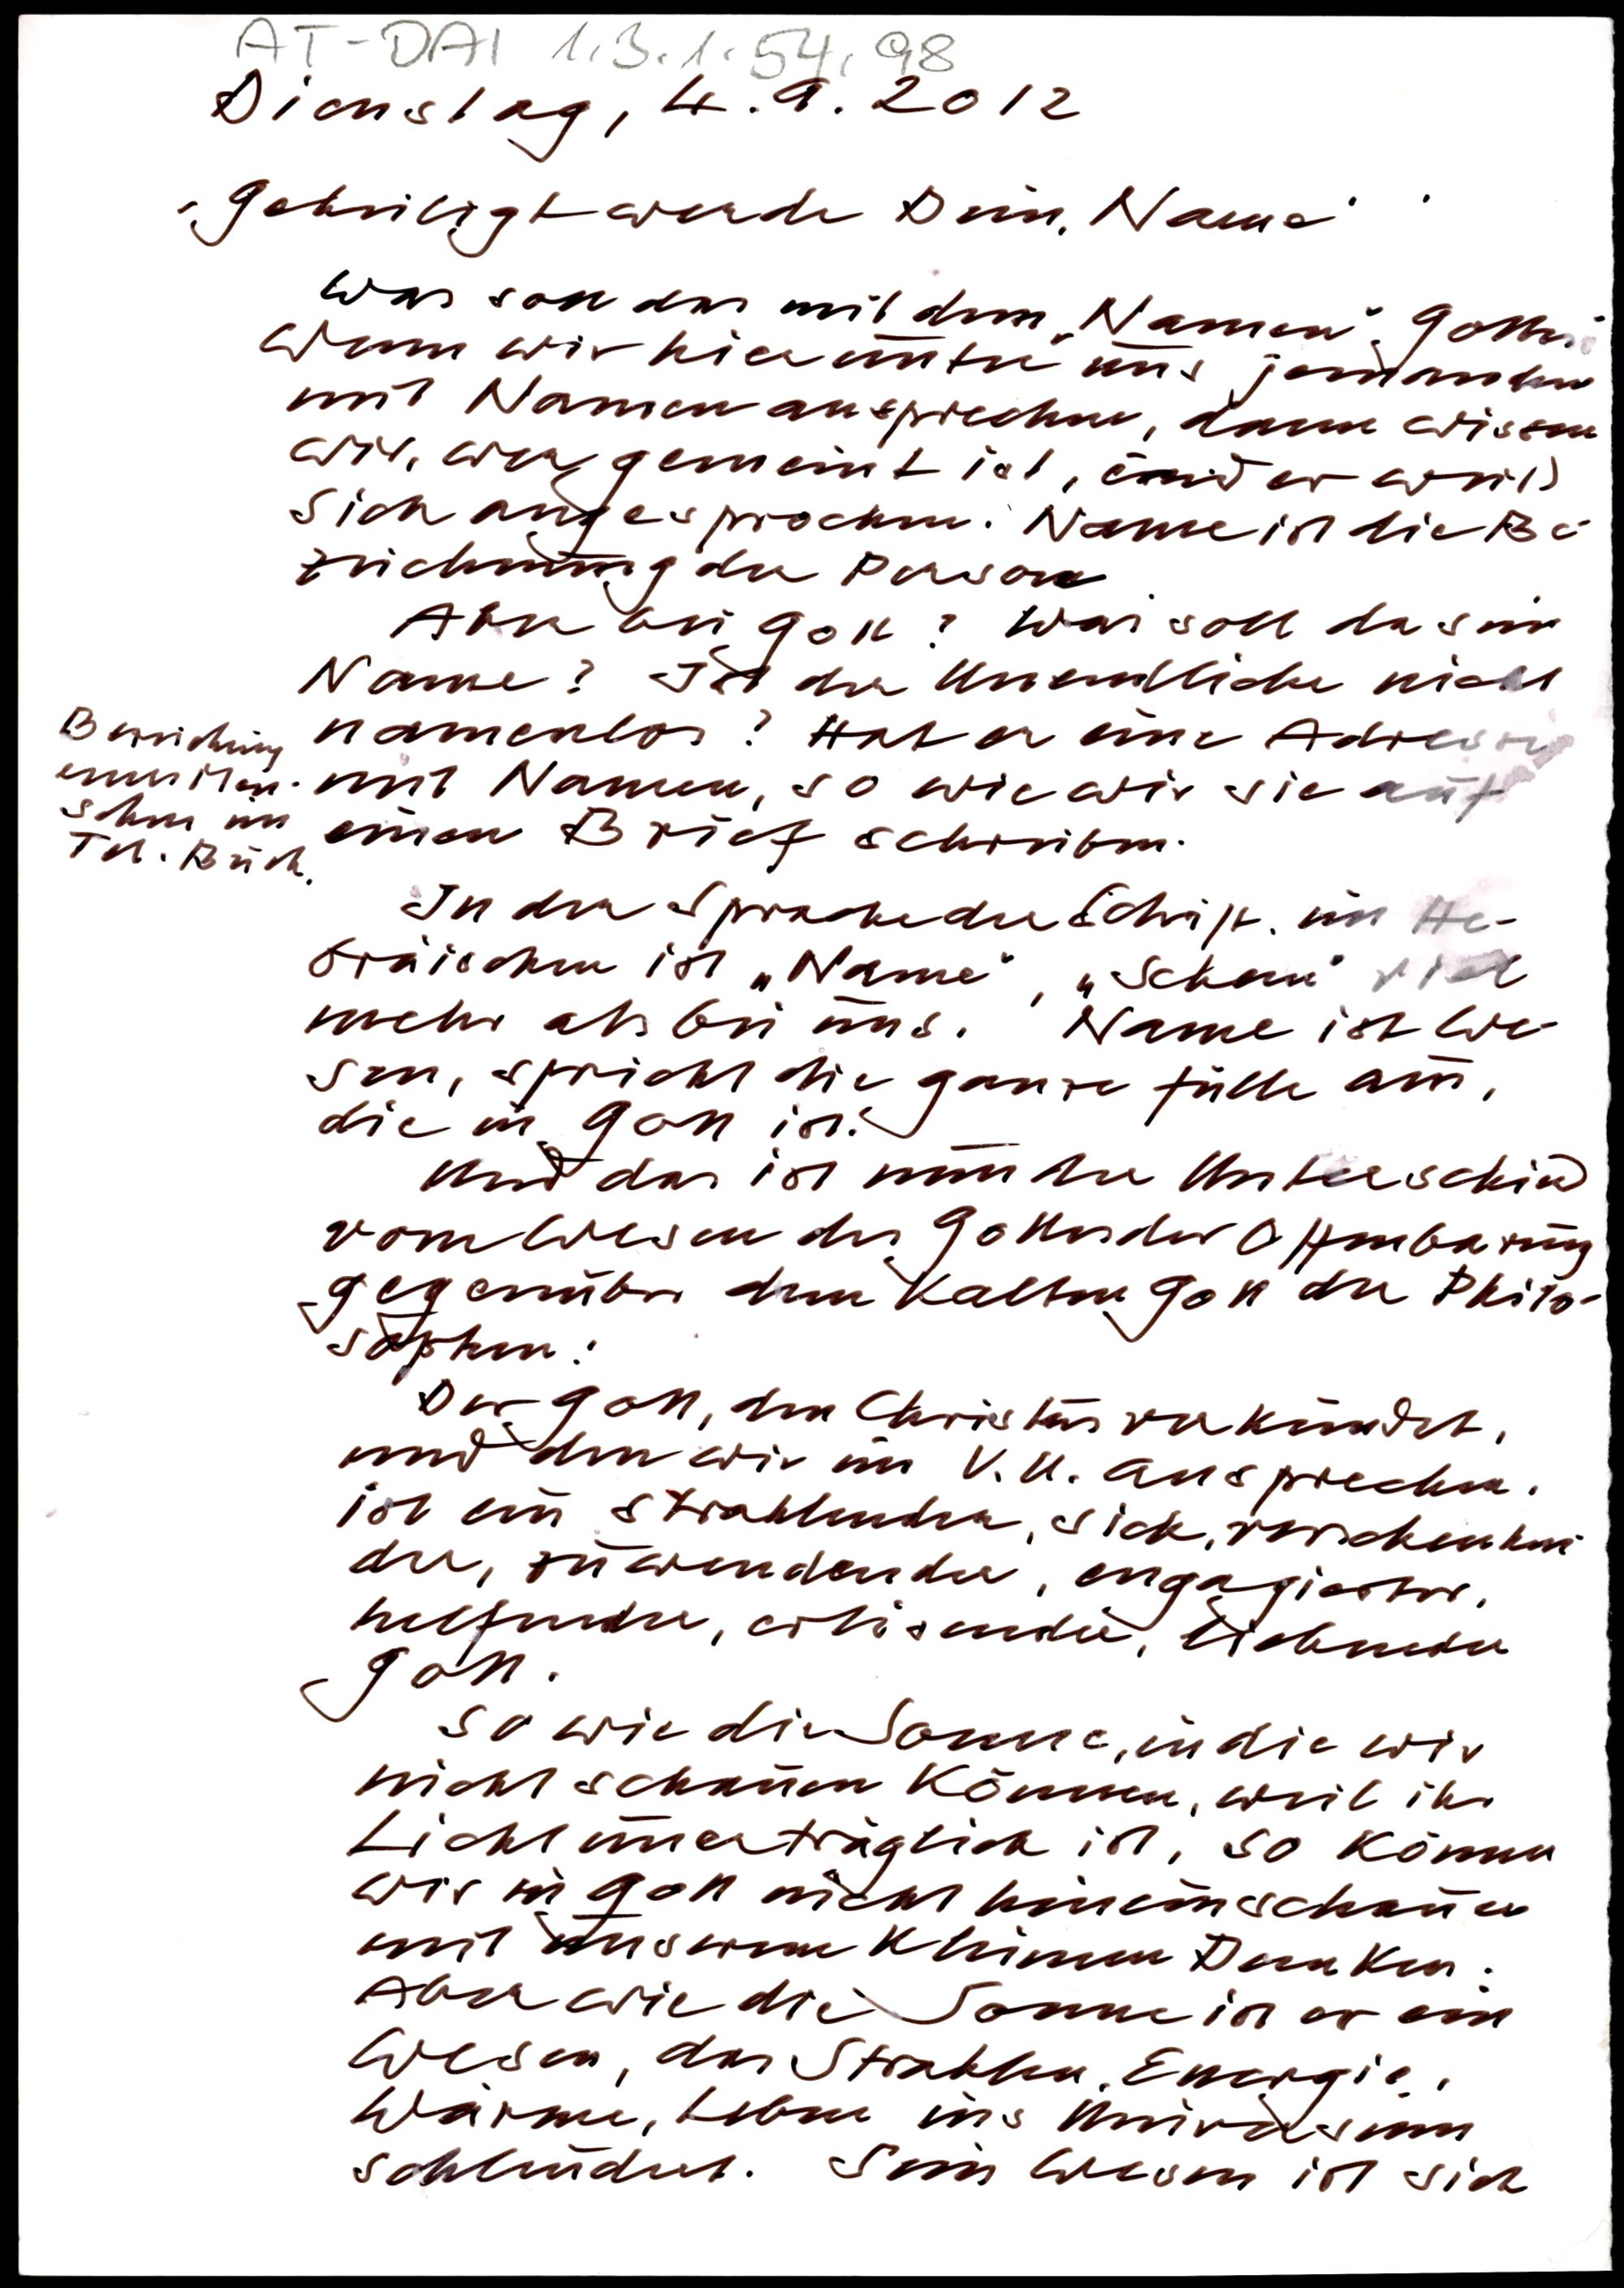 AT-DAI 1.3.1.54.98
Dienstag, 4.9.2012
„Geheiligt werde Dein Name"
Was soll das mit dem „Namen" Gottes?
Wenn wir hier unter uns jemanden
mit Namen ansprechen, dann wissen
wir, wer gemeint ist, und er weiß
sich angesprochen. Name ist die Be-
zeichnung der Person
Aber bei Gott? Was soll da sein
Name? Ist der Unendliche nicht
namenlos? Hat er eine Adresse
mit Namen, so wie wir sie auf
einen Brief schreiben.
Bezeichnung
eines Men-
schen im
Tel. Buch.
In der Sprache der Schrift, im He-
bräischen ist „Name", „Schem" viel
mehr als bei uns. Name ist We-
sen, spricht die ganze Fülle aus,
die in Gott ist.
Und das ist nun der Unterschied
vom Wesen des Gottes der Offenbarung
gegenüber dem kalten Gott der Philo-
sophen:
Der Gott, den Christus verkündet,
und den wir im V.U. ansprechen,
ist ein strahlender, sich verschenken-
der, zuwendender, engagierter,
helfender, erlösender, liebender
Gott.
So wie die Sonne, in die wir
nicht schauen können, weil ihr
Licht unerträglich ist, so können
wir in Gott nicht hineinschauen
mit unserem kleinen Denken.
Aber wie die Sonne ist er ein
Wesen, das Strahlen, Energie,
Wärme, Leben ins Universum
schleudert. Sein Wesen ist sich